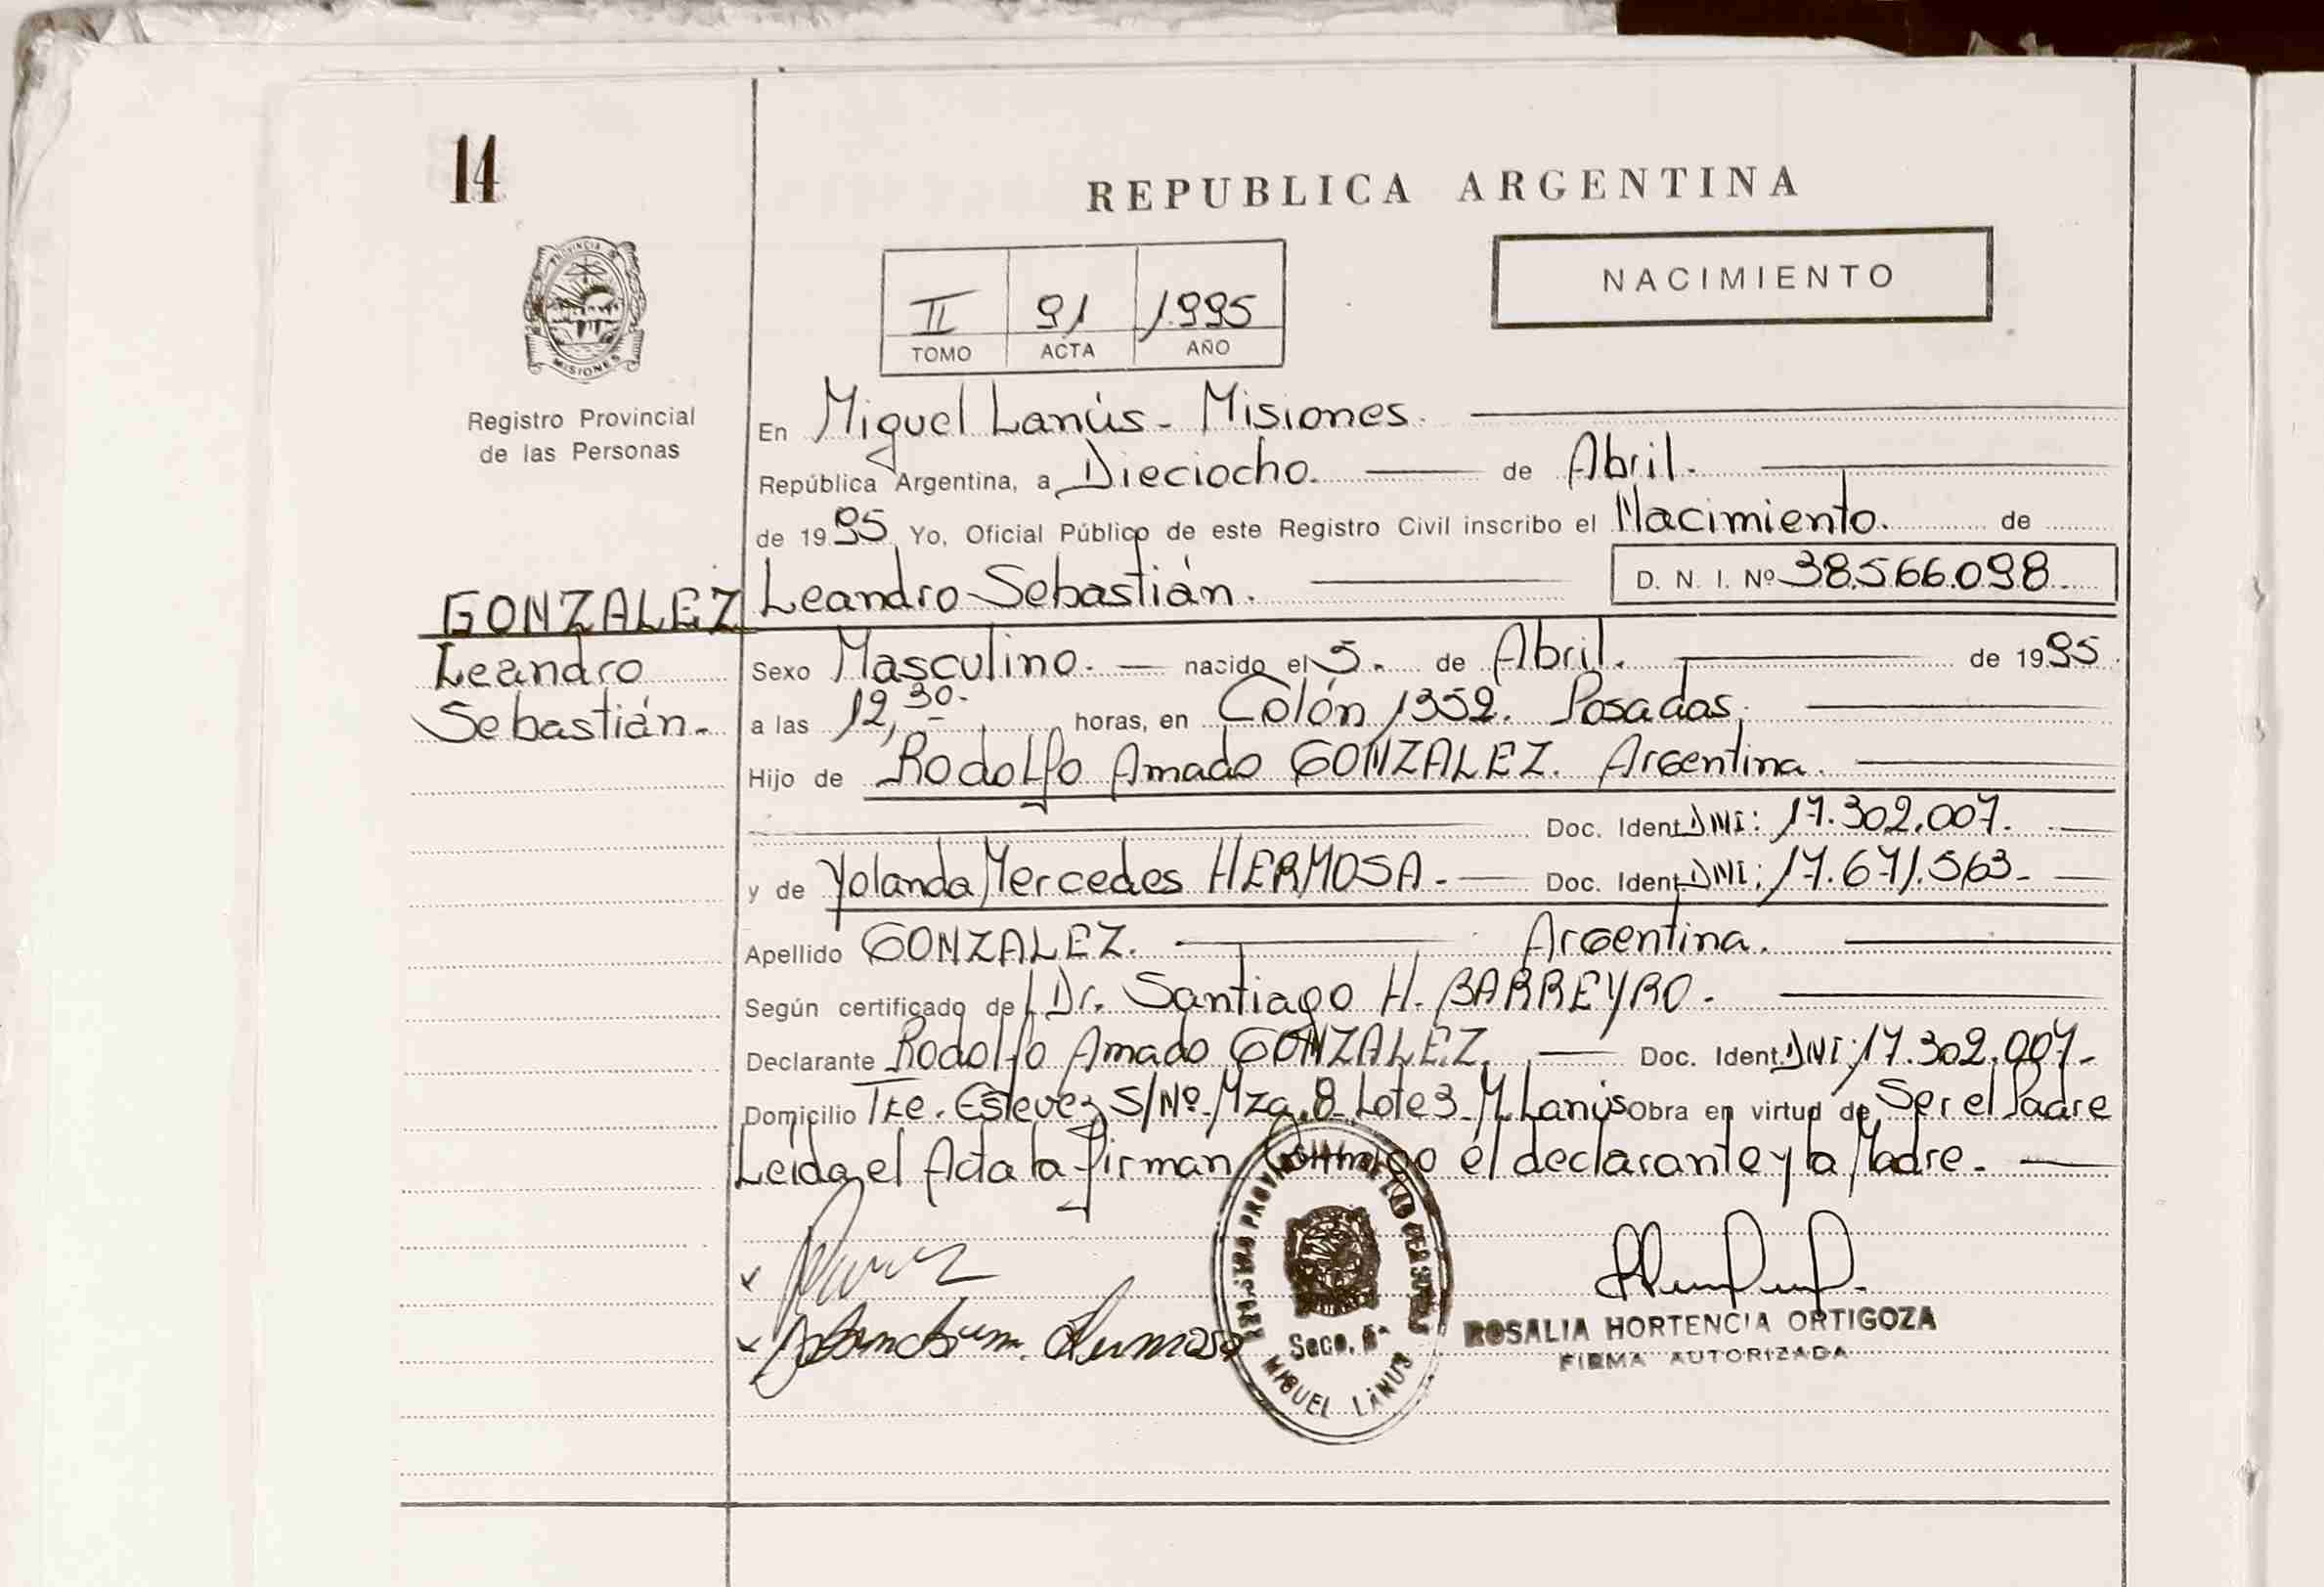 14
REPUBLICA ARGENTINA
PROVINCIA DE
MISIONES
Registro Provincial
de las Personas
II 91 1995
TOMO ACTA AÑO
NACIMIENTO
En Miguel Lanús - Misiones.
República Argentina, a Dieciocho. de Abril.
de 1995 Yo, Oficial Público de este Registro Civil inscribo el Nacimiento. de
GONZALEZ Leandro Sebastián. D. N. I. Nº 38.566.098
Leandro
Sebastián.
Sexo Masculino. nacido el 5. de Abril. de 1995
a las 12,30. horas, en Colón 1352. Posadas.
Hijo de Rodolfo Amado GONZALEZ. Argentina.
Doc. Ident. DNI: 17.302.007.
y de Yolanda Mercedes HERMOSA. Doc. Ident. DNI: 17.671.563-
Apellido GONZALEZ. Argentina.
Según certificado de Dr. Santiago H. BARREYRO.
Declarante Rodolfo Amado GONZALEZ. Doc. Ident. DNI: 17.302.007-
Domicilio Tte. Estevez S/Nº Mza. 8 Lote 3 M. Lanús Obra en virtud de Ser el Padre
Leida el Acta la firman Conmigo el declarante y la Madre.
Secc. 5ª
MIGUEL LANUS
ROSALIA HORTENCIA ORTIGOZA
FIRMA AUTORIZADA